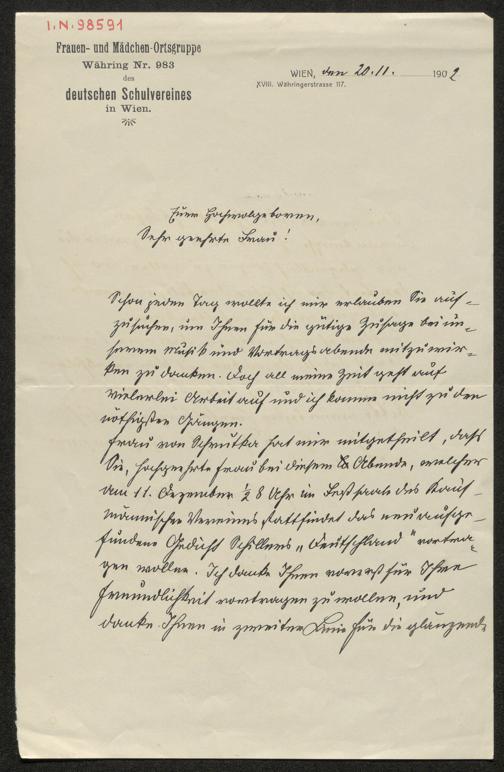 I.N. 98591
Frauen- und Mädchen-Ortsgruppe
Währing Nr. 983
des
deutschen Schulvereines
in Wien.
WIEN, den 20. 11. 1902
XVIII. Währingerstrasse 117.
Euer Hochwolgeboren,
Sehr geehrte Frau!
Schon jeden Tag wollte ich mir erlauben Sie auf-
zusuchen, um Ihnen für die gütige Zusage bei un-
serem Musik und Vortragsabende mitzuwir-
ken zu danken. Doch all meine Zeit geht auf
vielerlei Arbeit auf und ich komme nicht zu den
nöthigsten Gängen.
Frau von Schmutka hat mir mitgetheilt, dass
Sie, hochgeehrte Frau bei diesem Abende, welcher
am 11. Dezember ½ 8 Uhr im Festsaale des Kauf-
männischen Vereines stattfindet das neu aufge-
fundene Gedicht Schillers „Deutschland" vortra-
gen wollen. Ich danke Ihnen vorerst für Ihre
Freundlichkeit vortragen zu wollen, und
danke Ihnen in zweiter Linie für die glänzende